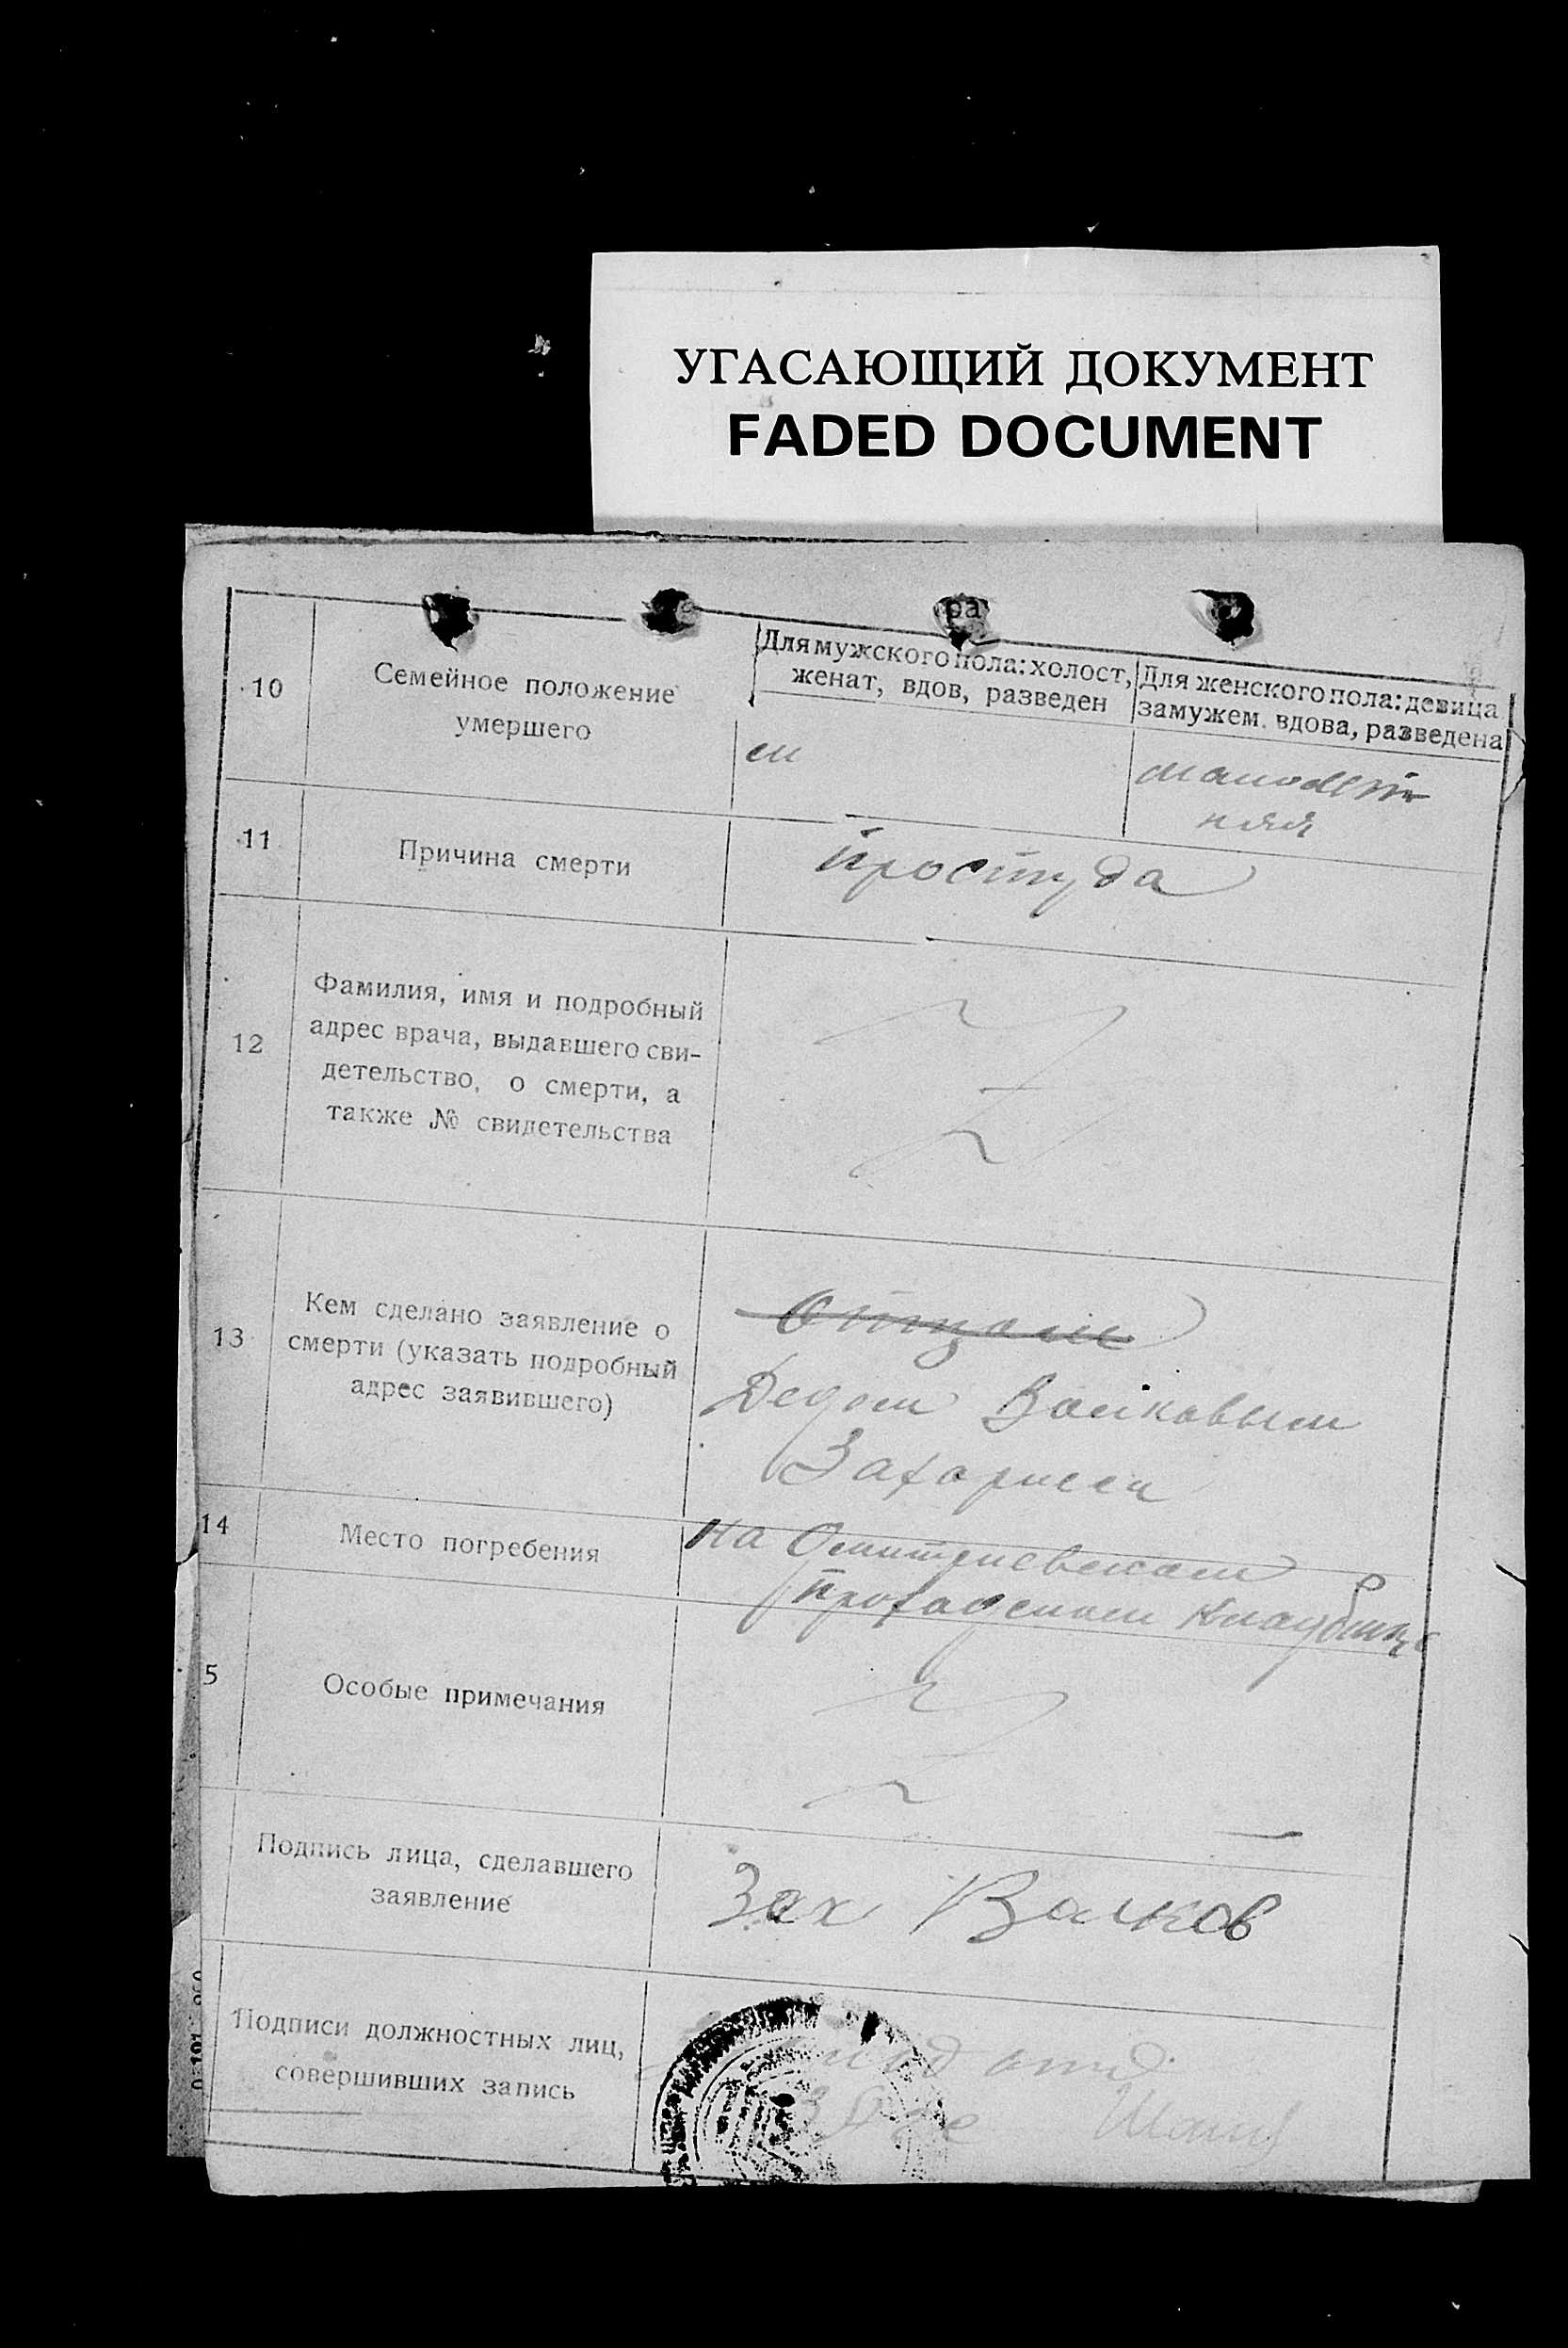 УГАСАЮЩИЙ ДОКУМЕНТ
FADED DOCUMENT
ра
10
Семейное положение
умершего
Для мужского пола: холост,
женат, вдов, разведен
Для женского пола: девица
замужем. вдова, разведена
малолет
няя
11
Причина смерти
простуда
12
Фамилия, имя и подробный
адрес врача, выдавшего сви-
детельство, о смерти, а
также № свидетельства
13
Кем сделано заявление о
смерти (указать подробный
адрес заявившего)
Отцом
Дедом
Захарием
14
Место погребения
на
кладбище
5
Особые примечания
Подпись лица, сделавшего
заявление
Зах
Подписи должностных лиц,
совершивших запись